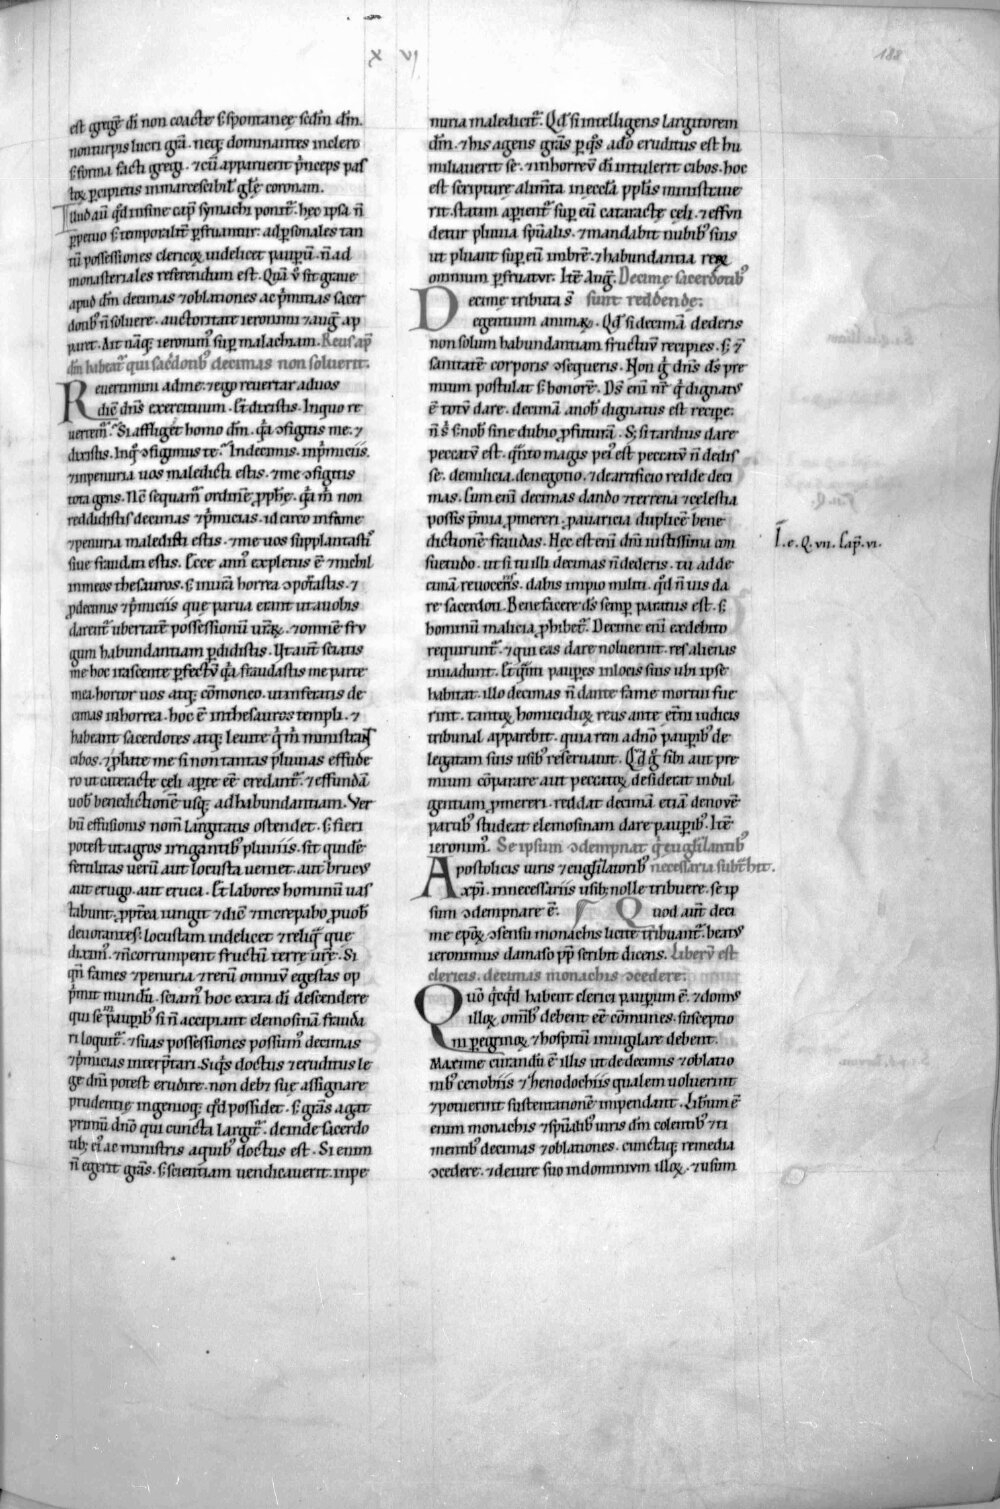 X VI
188
est grege᷒ di non coacte s; spontaneę secdm dm̄.
non turpis lucri grã. neq; dominantes in clero
s; forma facti gregi. ⁊ cũ apparuerit p̃nceps pas
toꝝ ꝑcipietis inmarcescibil̃ glę coronam.
Illud aũ qđ in fine cap̃ symachi ponit᷑. hec ipsa ñ
ꝑpetuo s; temporalit̃ ꝑfruantur. ad ꝑsonales tan
tũ possessiones clericoꝝ uidelicet pauperũ. ñ ad
monasteriales referendum est. Quã ṽ sit graue
apud dm̄ decimas ⁊ oblationes ac p̃mitias sacer
dotibꝫ ñ soluere. auctoritate ieronimi ⁊ aug̃. ap
paret. Ait nãq; ieronimꝰ sup̃ malachiam. Reus ap̃
dm̄ habeat᷑ qui sac̃dotibꝫ decimas non soluerit.
Reuertimini ad me. ⁊ ego reuertar ad uos
dic̃ dñs exercituum. Et dixistis. In quo re
uertem᷑. Si affliget homo dm̄. q̃a ↄfigitis me. ⁊
dixistis. In q̊ ↄfigimus te. In decimis. in p̃miciis.
⁊ in penuria uos maledicti estis. ⁊ me ↄfigitis
tota gens. Nc̃ sequam᷑ ordinẽ ꝓph̃ę. q̃a m̃ non
reddidistis decimas ⁊ p̃micias. idcirco in fame
⁊ penuria maledicti estis. ⁊ me uos supplantastis
siue fraudati estis. Ecce annꝰ expletus ẽ ⁊ nichil
in meos thesauros. s; in uñra horrea ↄportastis. ⁊
ꝓ decimis ⁊ p̃miciis que parua erant ut a uobis
darent᷑ ubertatẽ possessionũ urãꝝ. ⁊ omnẽ fru
gum habundantiam ꝑdidistis. Ut aut̃ sciatis
me hoc irascente ꝑfectũ q̃a fraudastis me parte
mea. hortor uos atq; cõmoneo. ut inferatis de
cimas in horrea. hoc ẽ in thesauros templi. ⁊
habeant sacerdotes atq; leuite q̃ m̃ ministrant
cibos. ⁊ ꝓbate me si non tantas pluuias effude
ro ut cateracte cęli aperte eẽ credant᷑. ⁊ effundã
uob̃ benedictionẽ usq; ad habundantiam. Ver
bũ effusionis nom̃ largitatis ostendet. s; fieri
potest ut agros irrigantibꝫ pluuiis. sit quidẽ
fertilitas uerũ aut locusta ueniet. aut brucus
aut erugo. aut eruca. Et labores hominũ uas
tabunt. ꝓpt̃ea iungit ⁊ dic̃ ⁊ increpabo ꝓ uob̃
deuorantes. locustam uidelicet ⁊ reliq̃ que
diximꝰ. ⁊ ñ corrumpent fructũ terrę urę. Si
qñ fames ⁊ penuria ⁊ rerũ omniũ egestas op
p̃mit mundũ. sciamꝰ hoc ex ira di descendere
qui se in pauperibꝫ si ñ accipiant elemosinã frauda
ri loquit᷑. ⁊ suas possessiones possumꝰ decimas
⁊ p̃micias interp̃tari. Siq̃s doctus ⁊ eruditus le
ge dñi potest erudire. non debet suę assignare
prudentię ingenioq; qđ possidet. s; grãs agat
primũ dño qui cuncta largit᷑. deinde sacerdo
tibꝫ eiꝰ ac ministris a quibꝫ doctus est. Si enim
ñ egerit grãs. s; scientiam uendicauerit. in pe
nuria maledicit᷑. Qđ si intelligens largitorem
dm̄. ⁊ his agens grãs ꝑ q̃s a dõ eruditus est hu
miliauerit se. ⁊ in horreũ di intulerit cibos. hoc
est scripturę alim̃ta in eccl̃a ppl̃is ministraue
rit. statim aperient᷑ sup̃ eũ cataractę cęli. ⁊ effun
detur pluuia sp̃ualis. ⁊ mandabit nubibꝫ suis
ut pluant sup̃ eũ imbrẽ. ⁊ habundantia reꝝ
omnium ꝑfruatur. Itẽ Aug̃. Decimę sacerdotibꝫ
Decimę tributa s̃ sunt reddendę.
egentium animaꝝ. Qđ si decimã dederis
non solum habundantiam fructuũ recipies. s; ⁊
sanitatẽ corporis ↄsequeris. Non g̊ dñs ds̃ pre
mium postulat s; honorẽ. Ds̃ eni nr̃ q̃ dignatꝰ
ẽ totũ dare. decimã a nob̃ dignatus est recipe.
ñ s̃ s; nob̃ sine dubio ꝓfuturã. S; si tardius dare
peccatũ est. q̃nto magis peiꝰ est peccatũ ñ dedis
se. de milicia. de negotio. ⁊ de artificio redde deci
mas. Cum eni decimas dando ⁊ terrena ⁊ cęlestia
possis p̃mia ꝓmereri. ꝓ auaricia duplicẽ bene
dictionẽ fraudas. Hęc est eni dñi iustissima con
suetudo. ut si tu illi decimas ñ dederis. tu ad de
cimã reuoceris. dabis impio militi. qđ ñ uis da
re sacerdoti. Benefacere ds̃ semp̃ paratus est. s;
hominũ malicia ꝓhibet᷑. Decime eni ex debito
requirunt᷑. ⁊ qui eas dare noluerint. res alienas
inuadunt. Et q̃nti pauperes in locis suis ubi ipse
habitat. illo decimas ñ dante fame mortui fue
rint. tantoꝝ homicidioꝝ reus ante et̃ni iudicis
tribunal apparebit. quia rem a dño pauperibꝫ de
legatam suis usibꝫ reseruauit. Qui g̊ sibi aut pre
mium cõparare aut peccatoꝝ desiderat indul
gentiam ꝓmereri. reddat decimã etiã de nouẽ
partibꝫ studeat elemosinam dare pauperibꝫ. Itẽ
ieronimꝰ. Se ipsum ↄdempnat q̃ euglizantibꝫ
Apostolicis uiris ⁊ euglizatoribꝫ necessaria subt̃hit.
xp̃i. in necessariis usibꝫ nolle tribuere. se ip
sum ↄdempnare ẽ. Quod aut̃ deci
me ep̃oꝝ ↄsensu monachis licite tribuant᷑. beatꝰ
ieronimus damaso pp̃ scribit dicens. Liberũ est
clericis. decimas monachis ↄcedere.
Quõ q̃cq̃d habent clerici pauperum ẽ. ⁊ domꝰ
illoꝝ omibꝫ debent eẽ cõmunes. susceptio
ni peregrinoꝝ ⁊ hospitũ inuigilare debent.
Maxime curandũ ẽ illis ut de decimis ⁊ oblatio
nibꝫ cenobiis ⁊ xenodochiis qualem uoluerint
⁊ potuerint sustentationẽ impendant. Liberum ẽ
enim monachis ⁊ sp̃ualibꝫ uiris dm̄ colentibꝫ ⁊ ti
mentibꝫ decimas ⁊ oblationes. cunctaq; remedia
ↄcedere. ⁊ de iure suo in dominium illoꝝ. ⁊ usum
I. e. Q. vii. Cap̃. vi.